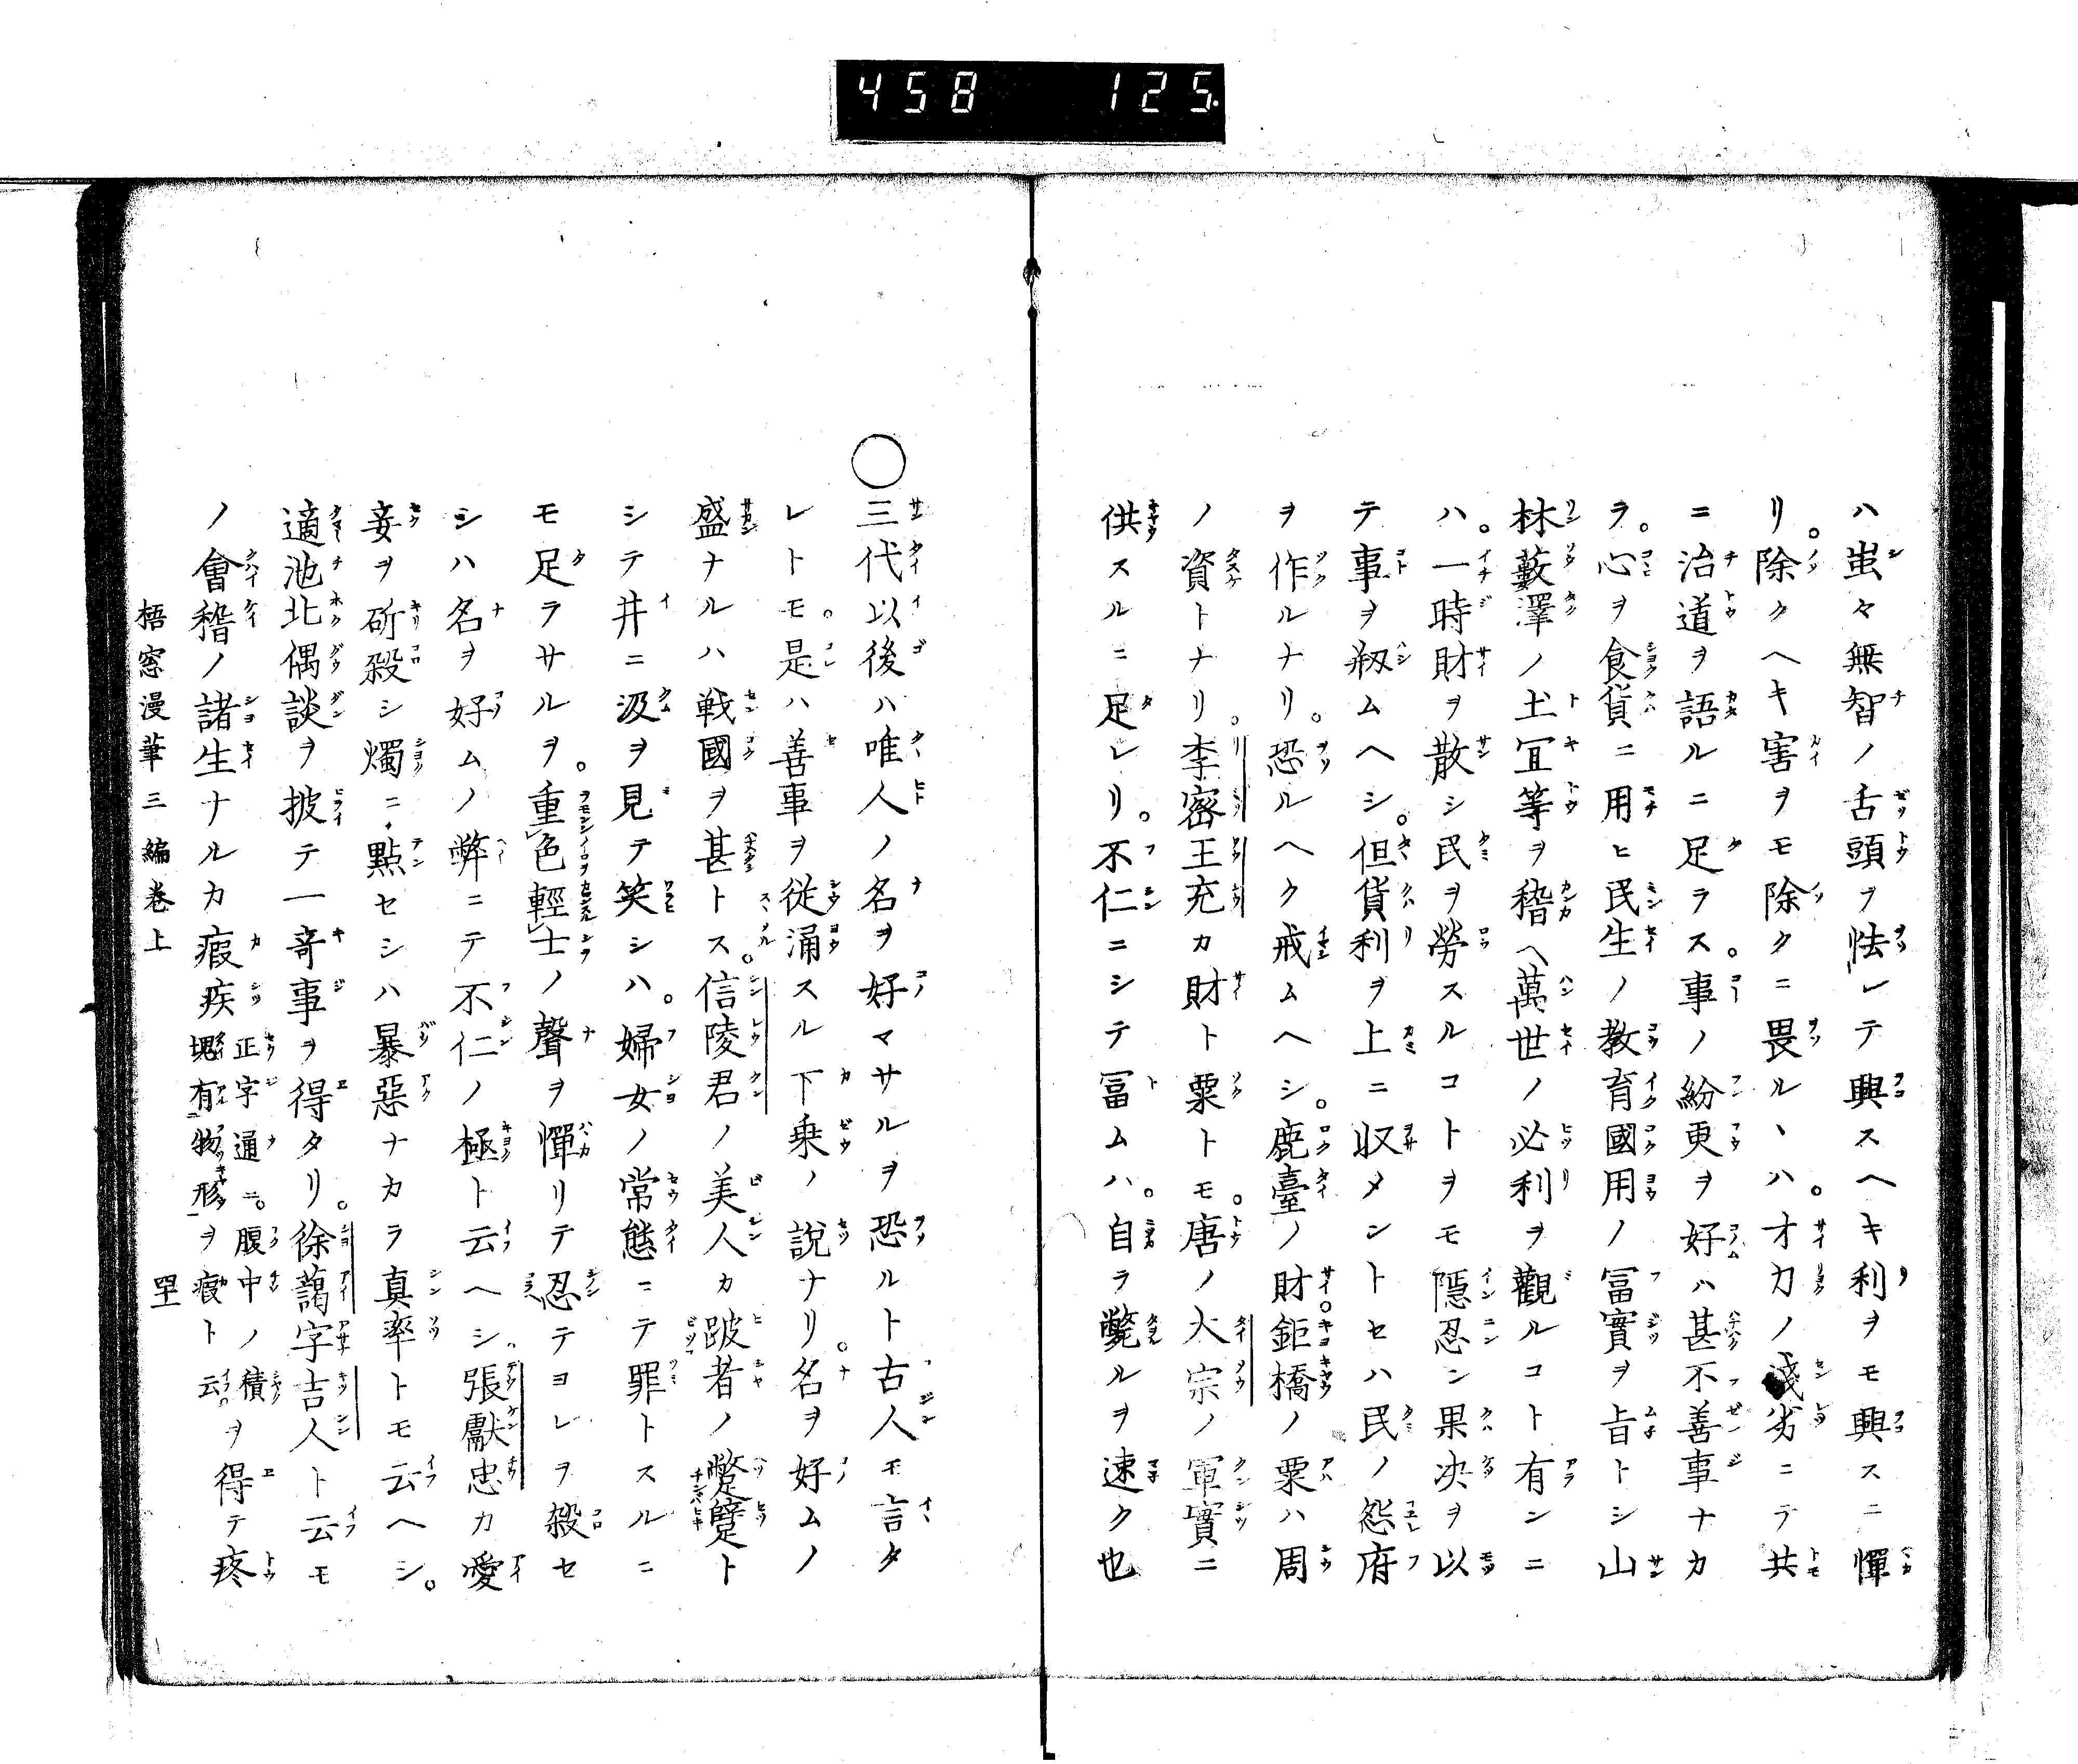 458 125
ハ蚩々無智ノ舌頭ヲ怯レテ興スヘキ利ヲモ興スニ憚
リ。除クヘキ害ヲモ除クニ畏ルヽハ。才力ノ淺劣ニテ共
ニ治道ヲ語ルニ足ラス。事ノ紛更ヲ好ハ甚不善事ナカ
ラ。心ヲ食貨ニ用ヒ民生ノ教育國用ノ冨實ヲ旨トシ山
林藪澤ノ土冝等ヲ稽ヘ萬世ノ必利ヲ觀ルコト有ンニ
ハ。一時財ヲ散シ民ヲ勞スルコトヲモ隠忍ン果决ヲ以
テ事ヲ剏ムヘシ。但貨利ヲ上ニ収メントセハ民ノ怨府
ヲ作ルナリ。恐ルヘク戒ムヘシ。鹿臺ノ財。鉅橋ノ粟ハ周
ノ資トナリ。李密王充カ財ト粟トモ。唐ノ大宗ノ軍實ニ
供スルニ足レリ。不仁ニシテ冨ムハ。自ラ斃ルヲ速ク也
○三代以後ハ唯人ノ名ヲ好マサルヲ恐ルト古人モ言タ
レトモ。是ハ善事ヲ從涌スル下乗ノ說ナリ。名ヲ好ムノ
盛ナルハ戦國ヲ甚トス。信陵君ノ美人カ跛者ノ蹩躄ト
シテ井ニ汲ヲ見テ笑シハ。婦女ノ常態ニテ罪トスルニ
モ足ラサルヲ。重色輕士ノ聲ヲ憚リテ忍テヨレヲ殺セ
シハ名ヲ好ムノ弊ニテ不仁ノ極ト云ヘシ。張獻忠カ愛
妾ヲ斫殺シ燭ニ點セシハ暴惡ナカラ真率トモ云ヘシ。
適池北偶談ヲ披テ一竒事ヲ得タリ。徐藹字吉人ト云モ
ノ會稽ノ諸生ナルカ瘕疾正字通ニ。腹中ノ積塊有物形ヲ瘕ト云。ヲ得テ疼
梧窓漫筆三編卷上